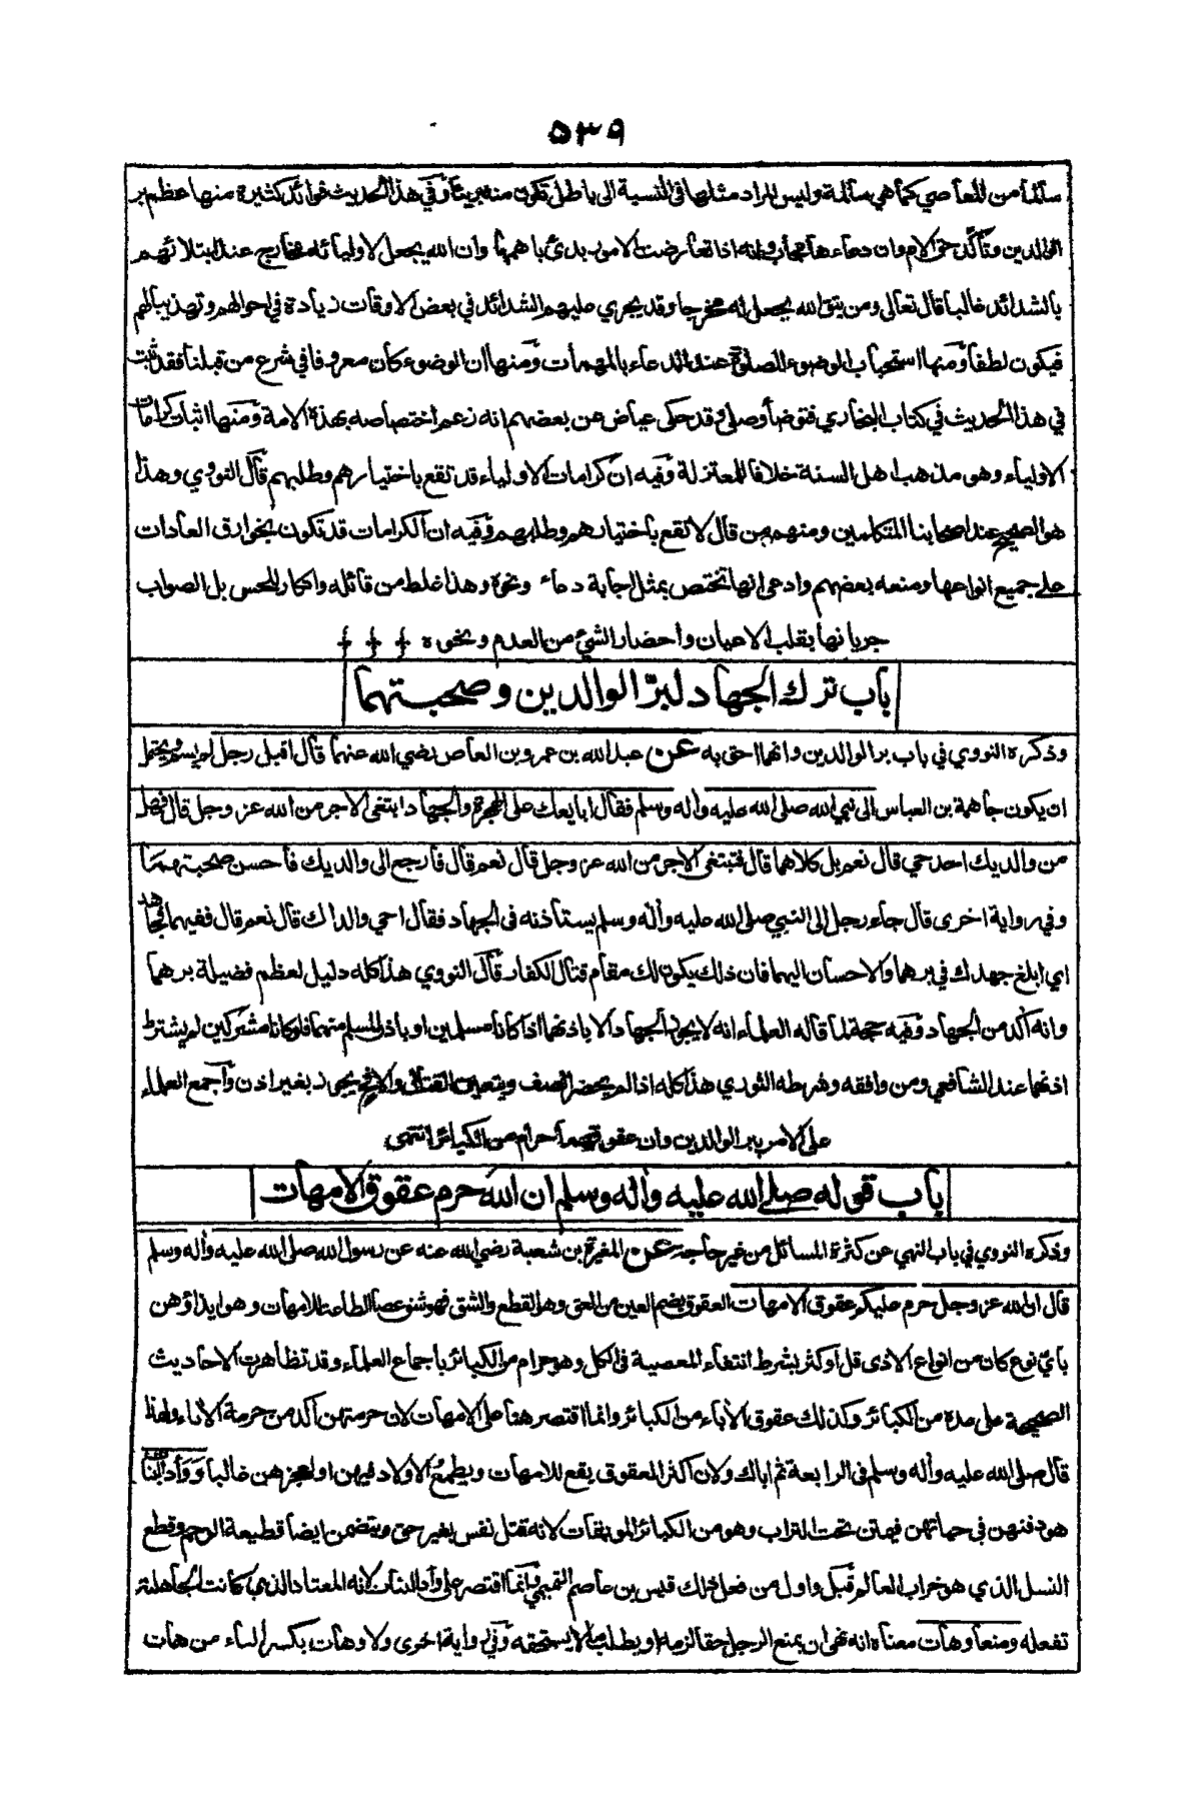 ٥٣٩
سالما من المعاصي كما هي سالمة وليس المراد مثلها في النسبة الى باطل تكون منه بريئا وفي هذا الحديث فوائد كثيرة منها عظم بر
الوالدين وتأكد حق الام وان دعاءها مجاب وانه اذا تعارضت الامور بدئ باهمها وان الله يجعل لاوليائه مخارج عند ابتلائهم
بالشدائد غالبا قال تعالى ومن يتق الله يجعل له مخرجا وقد يجري عليهم الشدائد في بعض الاوقات زيادة في احوالهم وتهذيبا لهم
فيكون لطفا ومنها استحباب الوضوء للصلوة عند الدعاء بالمهمات ومنها ان الوضوء كان معروفا في شرع من قبلنا فقد ثبت
في هذا الحديث في كتاب البخاري فتوضأ وصلى وقد حكى عياض عن بعضهم انه زعم اختصاصه بهذه الامة ومنها اثبات كرامات
الاولياء وهو مذهب اهل السنة خلافا للمعتزلة وفيه ان كرامات الاولياء قد تقع باختيارهم وطلبهم قال النووي وهذا
هو الصحيح عند اصحابنا المتكلمين ومنهم من قال لا تقع باختيارهم وطلبهم وفيه ان الكرامات قد تكون بخوارق العادات
على جميع انواعها ومنعه بعضهم وادعى انها تختص بمثل اجابة دعاء ونحوه وهذا غلط من قائله وانكار للحس بل الصواب
جريانها بقلب الاعيان واحضار الشئ من العدم ونحوه
باب ترك الجهاد لبرّ الوالدين وصحبتهما
وذكره النووي في باب بر الوالدين وانهما احق به عن عبد الله بن عمرو بن العاص رضي الله عنهما قال اقبل رجل لم يسم ويحتمل
ان يكون جاهمة بن العباس الى نبي الله صلى الله عليه وأله وسلم فقال ابايعك على الهجرة والجهاد ابتغي الاجر من الله عز وجل قال فهل
من والديك احد حي قال نعم بل كلاهما قال فتبتغي الاجر من الله عز وجل قال نعم قال فارجع الى والديك فأحسن صحبتهما
وفي رواية اخرى قال جاء رجل الى النبي صلى الله عليه وأله وسلم يستأذنه في الجهاد فقال احي والداك قال نعم قال ففيهما فجاهد
اي ابلغ جهدك في برهما والاحسان اليهما فان ذلك يكون لك مقام قتال الكفار قال النووي هذا كله دليل لعظم فضيلة برهما
وانه أكد من الجهاد وفيه حجة لما قاله العلماء انه لا يجوز الجهاد الا باذنهما اذا كانا مسلمين او باذن المسلم منهما فلو كانا مشركين لم يشترط
اذنهما عند الشافعي ومن وافقه وشرطه الثوري هذا كله اذا لم يحضر الصف ويتعين القتال والا فح يجوز بغير اذن وأجمع العلماء
على الامر ببر الوالدين وان عقوقهما حرام من الكبائر انتهى
باب قوله صلى الله عليه وأله وسلم ان الله حرم عقوق الامهات
وذكره النووي في باب النهي عن كثرة المسائل من غير حاجة عن المغيرة بن شعبة رضي الله عنه عن رسول الله صلى الله عليه وأله وسلم
قال ان الله عز وجل حرم عليكم عقوق الامهات العقوق بضم العين من العق وهو القطع والشق فهو شق عصا الطاعة للامهات وهو ايذاؤهن
بأي نوع كان من انواع الاذى قل أو كثر بشرط انتفاء المعصية في الكل وهو حرام من الكبائر باجماع العلماء وقد تظاهرت الاحاديث
الصحيحة على عده من الكبائر وكذلك عقوق الأباء من الكبائر وانما اقتصر هنا على الامهات لان حرمتهن أكد من حرمة الأباء ولهذا
قال صلى الله عليه وأله وسلم في الرابعة ثم اباك ولان اكثر العقوق يقع للامهات ويطمع الاولاد فيهن او لعجزهن غالبا ووأد البنات
هو دفنهن في حياتهن فيمتن تحت التراب وهو من الكبائر الموبقات لانه قتل نفس بغير حق ويتضمن ايضا قطيعة الرحم وقطع
النسل الذي هو خراب العالم قيل واول من فعل ذلك قيس بن عاصم التميمي وانما اقتصر على وأد البنات لانه المعتاد الذي كانت الجاهلية
تفعله ومنعا وهات معناه انه نهى ان يمنع الرجل حقا لزمه او يطلب ما لا يستحقه وفي رواية اخرى ولا وهات بكسر التاء من هات